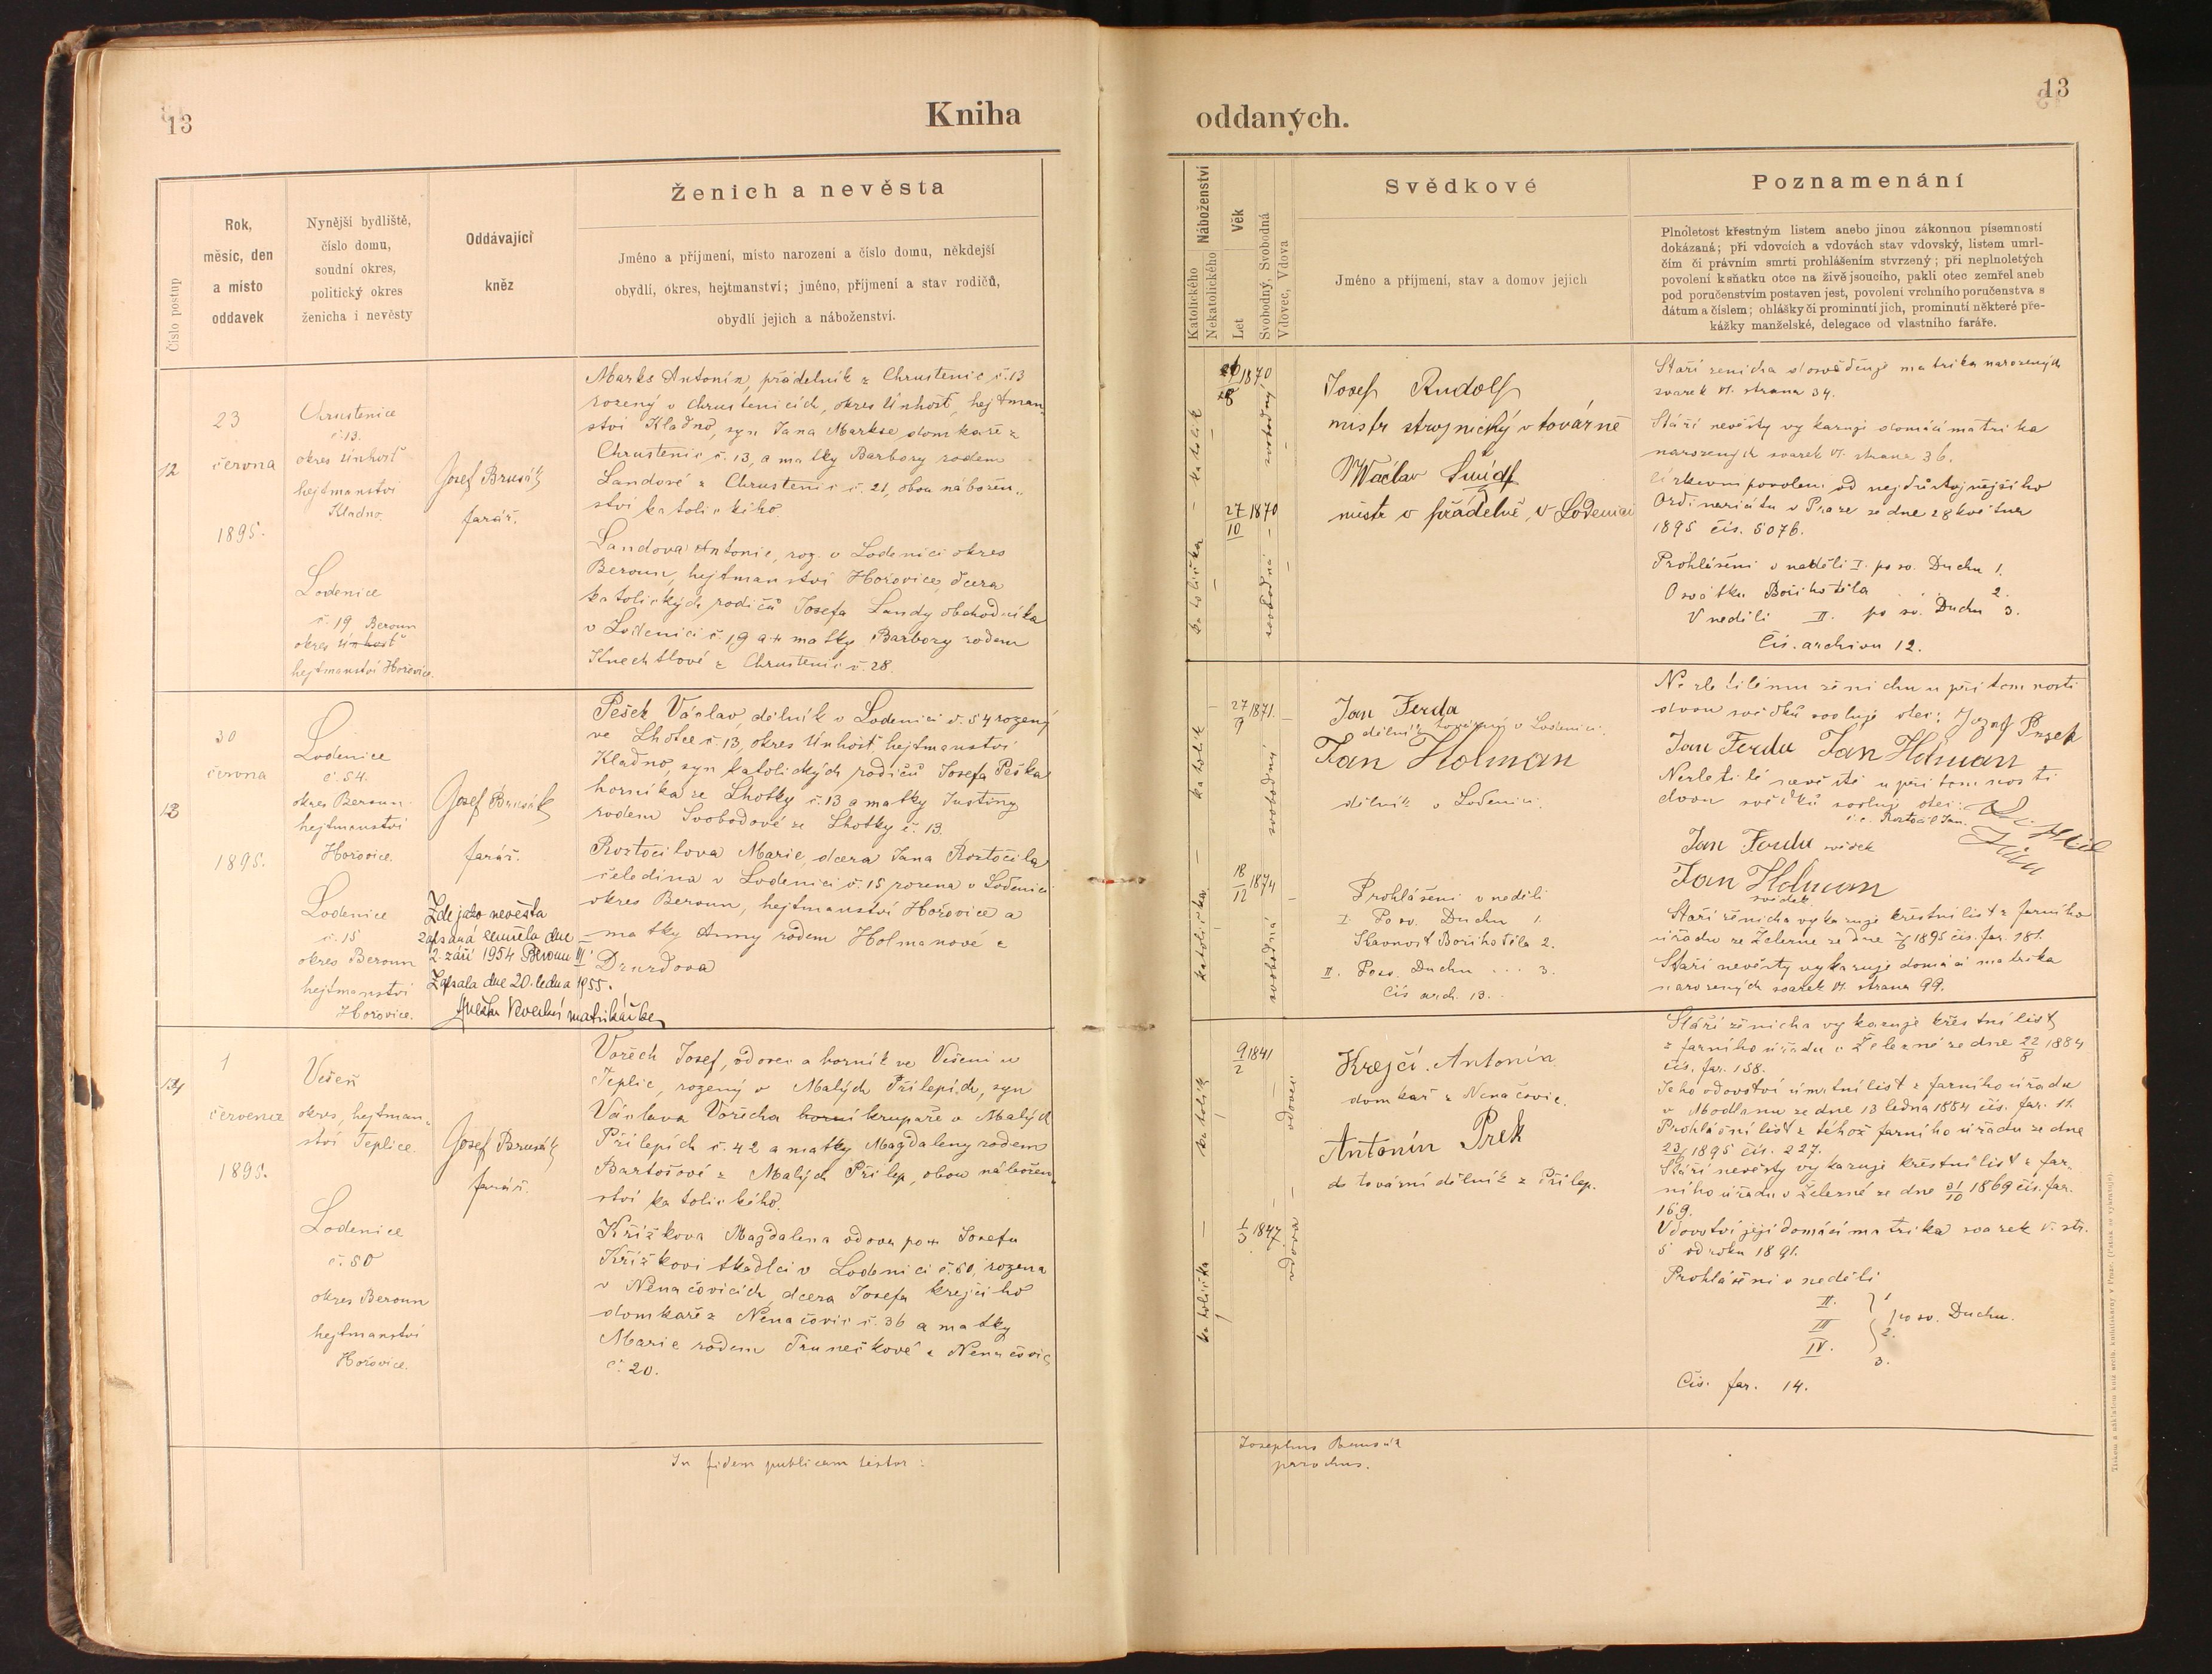 13
Kniha
Ženich a nevěsta
Číslo postup
Rok,
měsíc, den
a místo
oddavek
Nynější bydliště,
číslo domu,
soudní okres,
politický okres
ženicha i nevěsty
Oddávající
kněz
Jméno a příjmení, místo narození a číslo domu, někdejší
obydlí, okres, hejtmanství; jméno, příjmení a stav rodičů,
obydlí jejich a náboženství.
12
23
června
1895.
Chrustenice
č. 13.
okres Únhošť
hejtmanství
Kladno.
Loděnice
č. 19 Beroun
okres Únhošť
hejtmanství Hořovice.
Josef Brusák
farář.
Marks Antonín, přádelník z Chrustenic č. 13
rozený v Chrustenicích, okres Únhošť, hejtman„
ství Kladno, syn Jana Markse domkaře z
Chrustenic č. 13, a matky Barbory rodem
Landové z Chrustenic č. 21, obou nábožen„
ství katolického.
Landova Antonie, roz. v Loděnici okres
Beroun, hejtmanství Hořovice, dcera
katolických rodičů Josefa Landy obchodníka
v Loděnici č 19 a matky Barbory rodem
Knechtlové z Chrustenic č. 28.
13
30
června
1895.
Loděnice
č. 54.
okres Beroun
hejtmanství
Hořovice.
Loděnice
č. 15
okres Beroun
hejtmanství
Hořovice.
Josef Brusák
farář.
Zde jako nevěsta
zapsaná zemřela dne
2. září 1954 Beroun III
Zapsala dne 20. ledna 1955.
matrikářka
Pešek Václav, dělník v Loděnici č. 54 rozený
ve Lhotce č. 13, okres Únhošť, hejtmanství
Kladno, syn katolických rodičů Josefa Peška
horníka ze Lhotky č. 13 a matky Justiny
rodem Svobodové ze Lhotky č. 13.
Roztočilova Marie, dcera Jana Roztočila
čeledína v Loděnici č. 15 rozena v Loděnici
okres Beroun, hejtmanství Hořovice a
matky Anny rodem Holmanové z
Drurdova
14
1
července
1895.
Věšeň
okres, hejtman„
ství Teplice.
Loděnice
č. 50
okres Beroun
hejtmanství
Hořovice.
Josef Brusák
farář.
Vořech Josef, vdovec a horník ve Věšeni u
Teplic, rozený v Malých Přílepích, syn
Václava Vořecha horní krupaře v Malých
Přílepích č. 42 a matky Magdaleny rodem
Bartošové z Malých Přílep, obou nábožen„
ství katolického.
Křížkova Magdalena vdova po Josefu
Křížkovi tkadlci v Loděnici č. 50, rozena
v Nenačovicích dcera Josefa krejčího
domkaře z Nenačovic č. 36 a matky
Marie rodem Trunečkové z Nenačovic
č. 20.
In fidem publicam testor:
13
oddaných.
Náboženství
Katolického
Nekatolického
Věk
Let
Svobodný, Svobodná
Vdovec, Vdova
Svědkové
Jméno a příjmení, stav a domov jejich
Poznamenání
Plnoletost křestným listem anebo jinou zákonnou písemností
dokázaná; při vdovcích a vdovách stav vdovský, listem umrl-
čím či právním smrti prohlášením stvrzený; při neplnoletých
povolení k sňatku otce na živě jsoucího, pakli otec zemřel aneb
pod poručenstvím postaven jest, povolení vrchního poručenstva s
dátum a číslem; ohlášky či prominutí jich, prominutí některé pře-
kážky manželské, delegace od vlastního faráře.
katolík
1870
svobodný
katolička
27/10 1870
svobodná
Josef Rudolf
mistr strojnický v továrně
Wáclav Šmídt
mistr v přádelně, v Loděnici
Stáří ženicha dosvědčuje matrika narozených
svazek VI. strana 34.
Stáří nevěsty vykazuje domácí matrika
narozených svazek VI. strana 36.
Církevní povolení od nejdůstojnějšího
Ordinariátu v Praze ze dne 28 května
1895 čís. 5076.
Prohlášeni v neděli I. po sv. Duchu 1.
O svátku Božího těla . . . 2.
V neděli II. po sv. Duchu 3.
Čís. archivu 12.
katolík
27/9 1871.
svobodný
katolička
18/12 1874
svobodná
Jan Ferda
dělník tovární v Loděnici.
Jan Holman
dělník v Loděnici.
Prohlášeni v neděli
I. Po sv. Duchu 1.
Slavnost Božího těla 2.
II. Po sv. Duchu . . . 3.
Čís arch. 13.
Nezletilému ženichu u přítomnosti
dvou svědků svoluje otec: Jozef Pešek
Jan Ferda Jan Holman
Nezletilé nevěstě u přítomnosti
dvou svědků svoluje otec:
t. č. Roztočil Jan.
Jan Ferda svědek
Jan Holman
svědek
Stáří ženicha vykazuje křestní list z farního
úřadu ze Železne ze dne 1895 čís. far. 181.
Stáří nevěsty vykazuje domácí matrika
narozených svazek VI. strana 99.
katolík
9/2 1841
vdovec
katolička
1/3 1847.
vdova
Krejčí Antonín
domkář z Nenačovic.
Antonín Prek
do tovární dělník z Přílep.
Stáří ženicha vykazuje křestní list
z farního úřadu v Železné ze dne 22/8 1884
čís. far. 158.
Jeho vdovství úmrtní list z farního úřadu
v Modlanu ze dne 13 ledna 1884 čís. far. 11.
Prohlášní list z téhož farního úřadu ze dne
1895 čís. 227.
Stáří nevěsty vykazuje křestní list z far„
ního úřadu v Železné ze dne 31/10 1869 čís. far.
169.
Vdovství její domácí matrika svazek V. str.
5 od roku 1891.
Prohlášeni v neděli
II. 1
III 2. po sv. Duchu.
IV. 3.
Čís. far. 14.
Josephus Brusák
parochus.